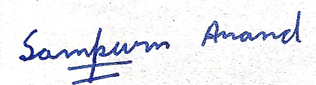 Sampurn Anand